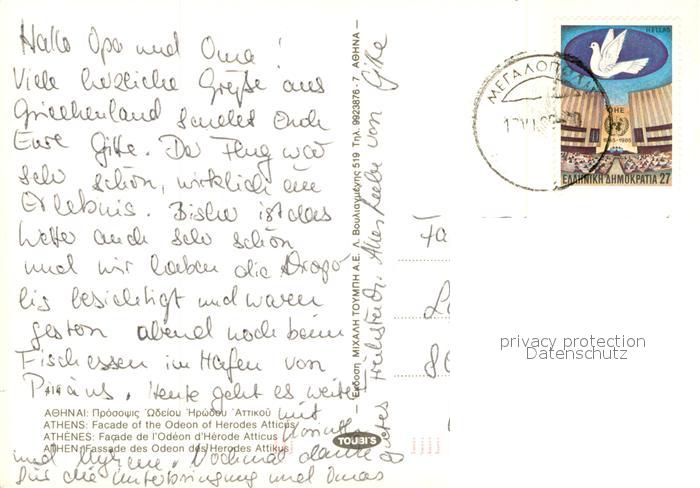 Hallo Opa und Oma!
Viele herzliche Grüße aus
Griechenland sendet Euch
Eure Gitte. Der Flug war
sehr schön, wirklich ein
Erlebnis. Bisher ist das
Wetter auch sehr schön
und wir haben die Akropo-
lis besichtigt und waren
gestern abend noch beim
Fischessen im Hafen von
Piräus. Heute geht es weiter
mit
Korinth
und Mykene. Nochmal danke
für die Unterbringung und Omas
gutes Frühstück. Alles Liebe von Gitte
414
ΑΘΗΝΑΙ: Πρόσοψις Ὠδείου Ἡρώδου Ἀττικοῦ
ATHENS: Facade of the Odeon of Herodes Atticus
ATHÈNES: Façade de l'Odéon d'Hérode Atticus
ATHEN: Fassade des Odeon des Herodes Attikus
TOUBI'S
Έκδοση ΜΙΧΑΛΗ ΤΟΥΜΠΗ Α.Ε. Λ. Βουλιαγμένης 519 Τηλ. 9923876 - 7, ΑΘΗΝΑ
ΜΕΓΑΛΟΠΟΛ
HELLAS
ΟΗΕ
1945-1985
ΕΛΛΗΝΙΚΗ ΔΗΜΟΚΡΑΤΙΑ 27
Fa
8
privacy protection
Datenschutz